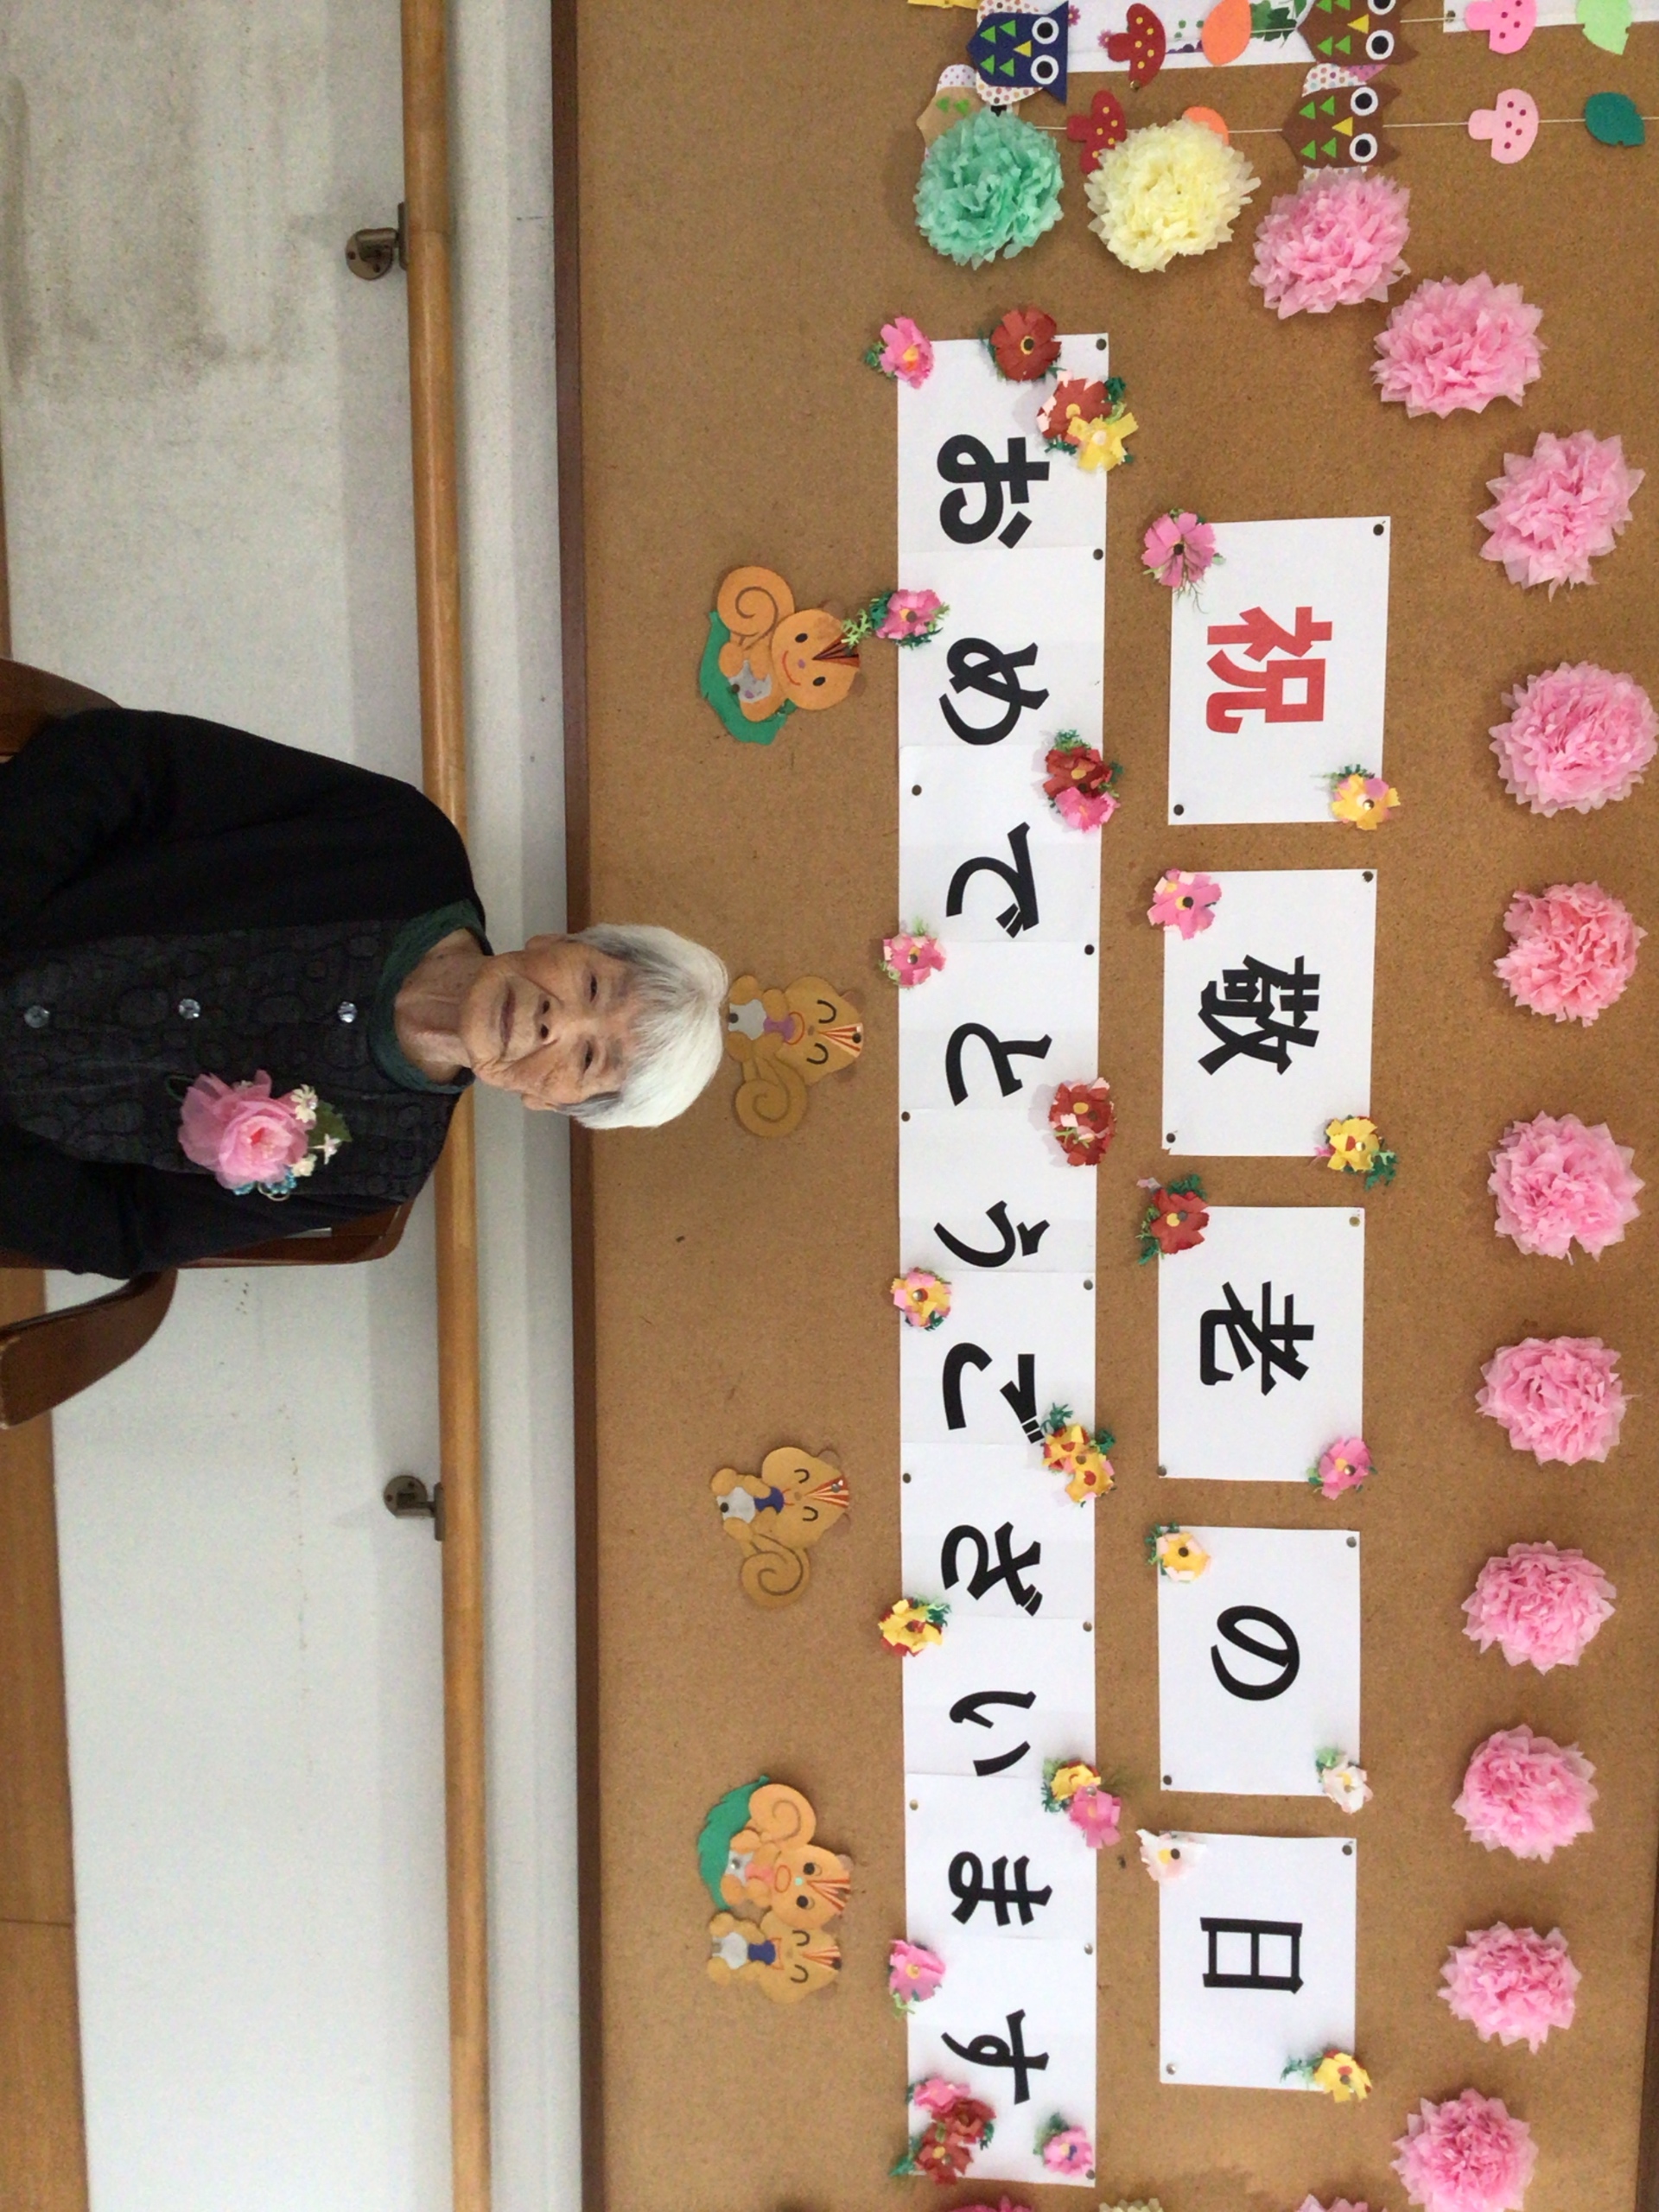 祝敬老の日
おめでとうございます